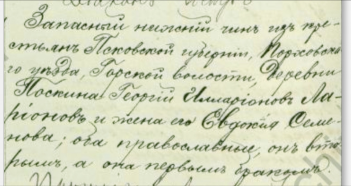 Запасный нижній чинъ изъ кре-
стьянъ Псковской губерніи, Порховска-
го уѣзда, Горской волости, Деревни
Поскина Георгій Илларіоновъ Ла-
ріоновъ и жена его Евдокія Семе-
нова; оба православные, онъ вто-
рымъ, а она первымъ бракомъ.